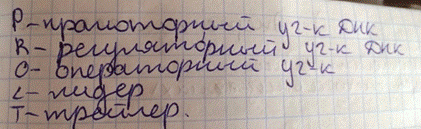 P - промоторный уч-к ДНК
R - регуляторный уч-к ДНК
O - операторный уч-к
L - лидер
T - трейлер.